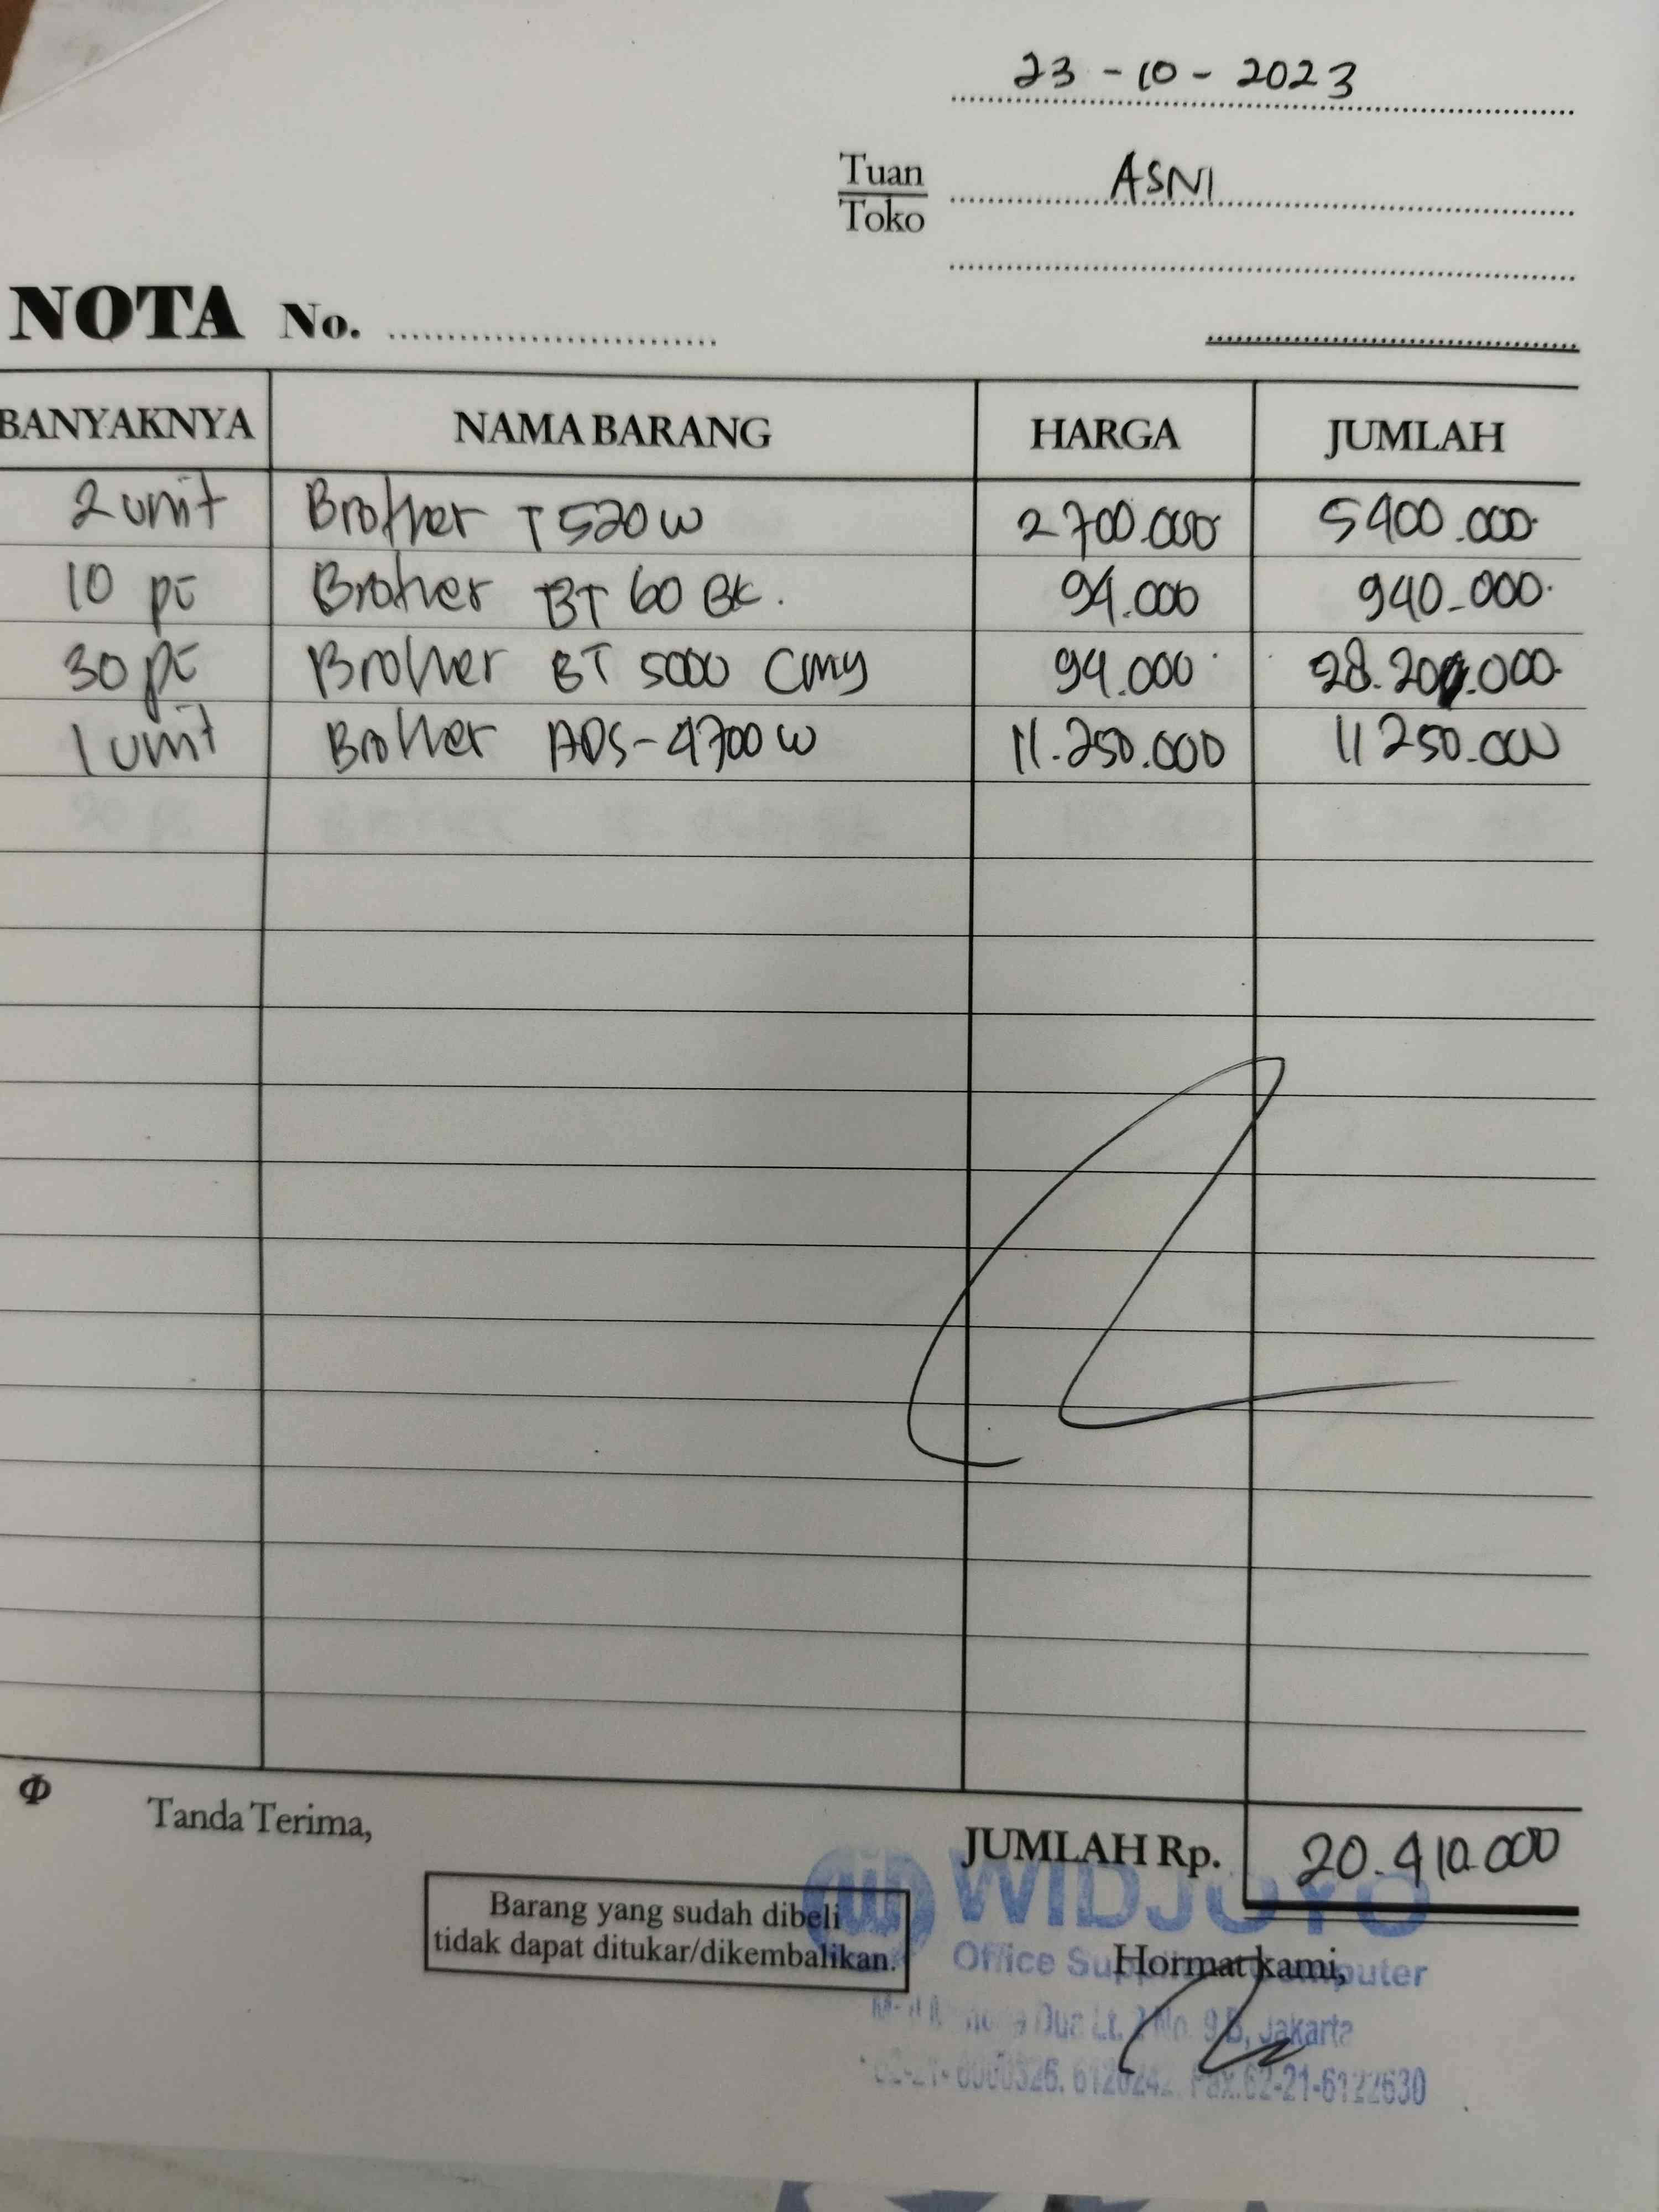 23 - 10 - 2023
Tuan ASNI
Toko
NOTA No.
BANYAKNYA NAMA BARANG HARGA JUMLAH
2 unit Brother T 520 W 2 700.000 5 400.000
10 pc Brother BT 60 BK. 94.000 940.000
30 pc Brother BT 5000 CMY 94.000 28.200.000
1 unit Brother ADS-4700 W 11.250.000 11 250.000
Tanda Terima,
JUMLAH Rp. 20.410.000
Barang yang sudah dibeli
tidak dapat ditukar/dikembalikan.
WIDJOYO
Hormat kami,
Office Computer
Dua Lt. No. 9 B, Jakarta
Fax.62-21-6122630